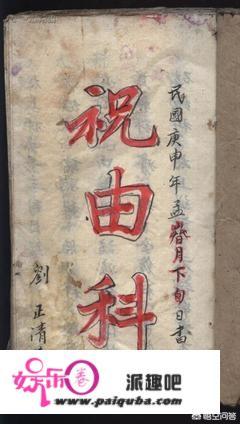 民國庚申年孟春月下旬日書
祝由科
劉正清
娱乐卷
派趣吧
www.paiquba.com
悟空问答